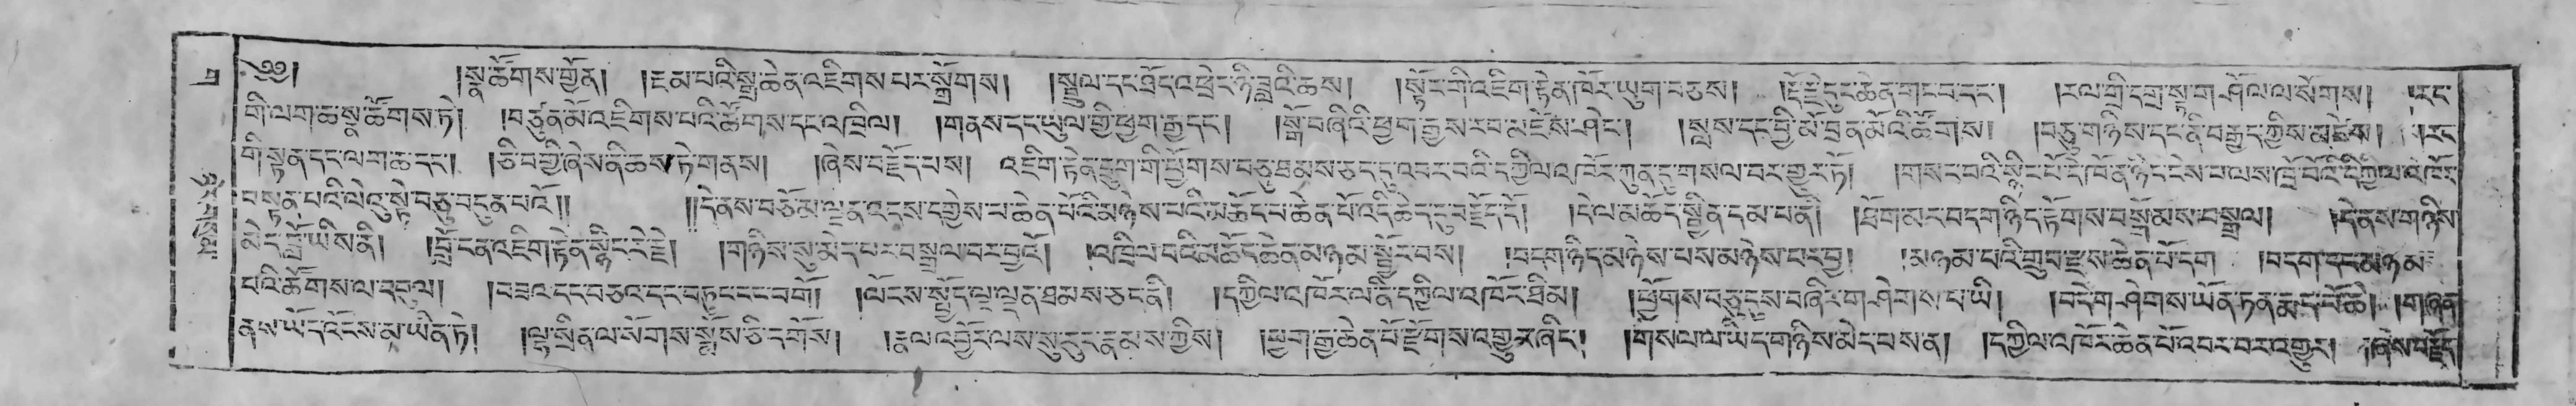 ༄༅། །སྣ་ཚོགས་གྱོན། །ངམ་པའི་སྒྲ་ཆེན་འཇིགས་པར་སྒྲོགས། །སྦྲུལ་དང་ཐོད་འཕྲེང་ཉི་ཟླའི་ཆས། །སྟོར་གི་འཇིག་རྟེན་ཁོར་ཡུག་བཅས། །རྡོ་རྗེ་དུང་ཆེན་གང་བ་དང་། །རལ་གྲི་དགྲ་སྟ་གཤོལ་ལ་སོགས། །རང་
གི་ལག་ཆ་སྣ་ཚོགས་ཏེ། །བཙུན་མོ་འཇིགས་པའི་ཚོགས་དང་འཁྲིལ། །གནས་དང་ཡུལ་གྱི་ཕྱག་རྒྱ་དང་། །སྒོ་བཞིའི་ཕྱག་རྒྱས་རབ་མཛེས་ཤིང་། །སྲས་དང་ཕྱི་མོ་བྲན་མོའི་ཚོགས། །བཅུ་གཉིས་དང་ནི་བརྒྱད་ཀྱིས་མཛེས། །རང་
གི་སྟན་དང་ལག་ཆ་དང་། །ཅི་བགྱི་ཞེས་ནི་ཆས་ཏེ་གནས། །ཞེས་བརྗོད་པས། འཇིག་རྟེན་དྲུག་གི་ཕྱོགས་བཅུ་ཐམས་ཅད་དུ་འབར་བའི་དཀྱིལ་འཁོར་ཀུན་དུ་གསལ་བར་གྱུར་ཏོ། །གསང་བའི་སྙིང་པོ་དེ་ཁོ་ན་ཉིད་ངེས་པ་ལས་ཁྲོ་བོའི་དཀྱིལ་འཁོར་
བསྟན་པའི་ལེའུ་སྟེ་བཅུ་བདུན་པའོ།། །།དེ་ནས་བཅོམ་ལྡན་འདས་དགྱེས་པ་ཆེན་པོའི་མཉེས་པའི་མཆོད་པ་ཆེན་པོ་འདི་ཆེད་དུ་བརྗོད་དོ། །དེ་ལ་མཆོད་སྦྱིན་དམ་པ་ནི། །ཐོག་མར་བདག་ཉིད་རྟོགས་བསྒོམས་བསྒྲལ། །དེ་ནས་གཉིས་
མེད་བློ་ཡིས་ནི། །བློ་ངན་འཇིག་རྟེན་སྙིང་རེ་རྗེ། །གཉིས་སུ་མེད་པར་བསྒྲལ་བར་བྱའོ། །འཁྲིལ་བའི་མཆོད་ཆེན་མཉམ་སྦྱོར་བས། །བདག་ཉིད་མཉེས་པས་མཉེས་པར་བྱ། །མཉམ་པའི་གྲུབ་རྫས་ཆེན་པོ་དག །བདག་དང་མཉམ་
པའི་ཚོགས་ལ་དབུལ། །བཟའ་དང་བཅའ་དང་བཏུང་དང་བགོ། །ལོངས་སྤྱོད་ལྔ་ལྡན་ཐམས་ཅད་ནི། །དཀྱིལ་འཁོར་ལ་ནི་དཀྱིལ་འཁོར་ཐིམ། །ཕྱོགས་བཅུ་དུས་བཞིར་གཤེགས་པ་ཡི། །བདེ་གཤེགས་ཡོན་ཏན་རྒྱ་མཚོ་ཆེ། །གཞན་
ནས་ཡོད་འོངས་མ་ཡིན་ཏེ། །ལྷ་སྲིན་ལ་སོགས་སྨོས་ཅི་དགོས། །རྣལ་འབྱོར་ལས་སུ་རུང་རྣམས་ཀྱིས། །ཕྱག་རྒྱ་ཆེན་པོ་རྫོགས་འགྱུར་ཞིང་། །གསལ་ལ་ཡིད་གཉིས་མེད་པས་ན། །དཀྱིལ་འཁོར་ཆེན་པོ་འབར་བར་འགྱུར། །ཞེས་བརྗོད་